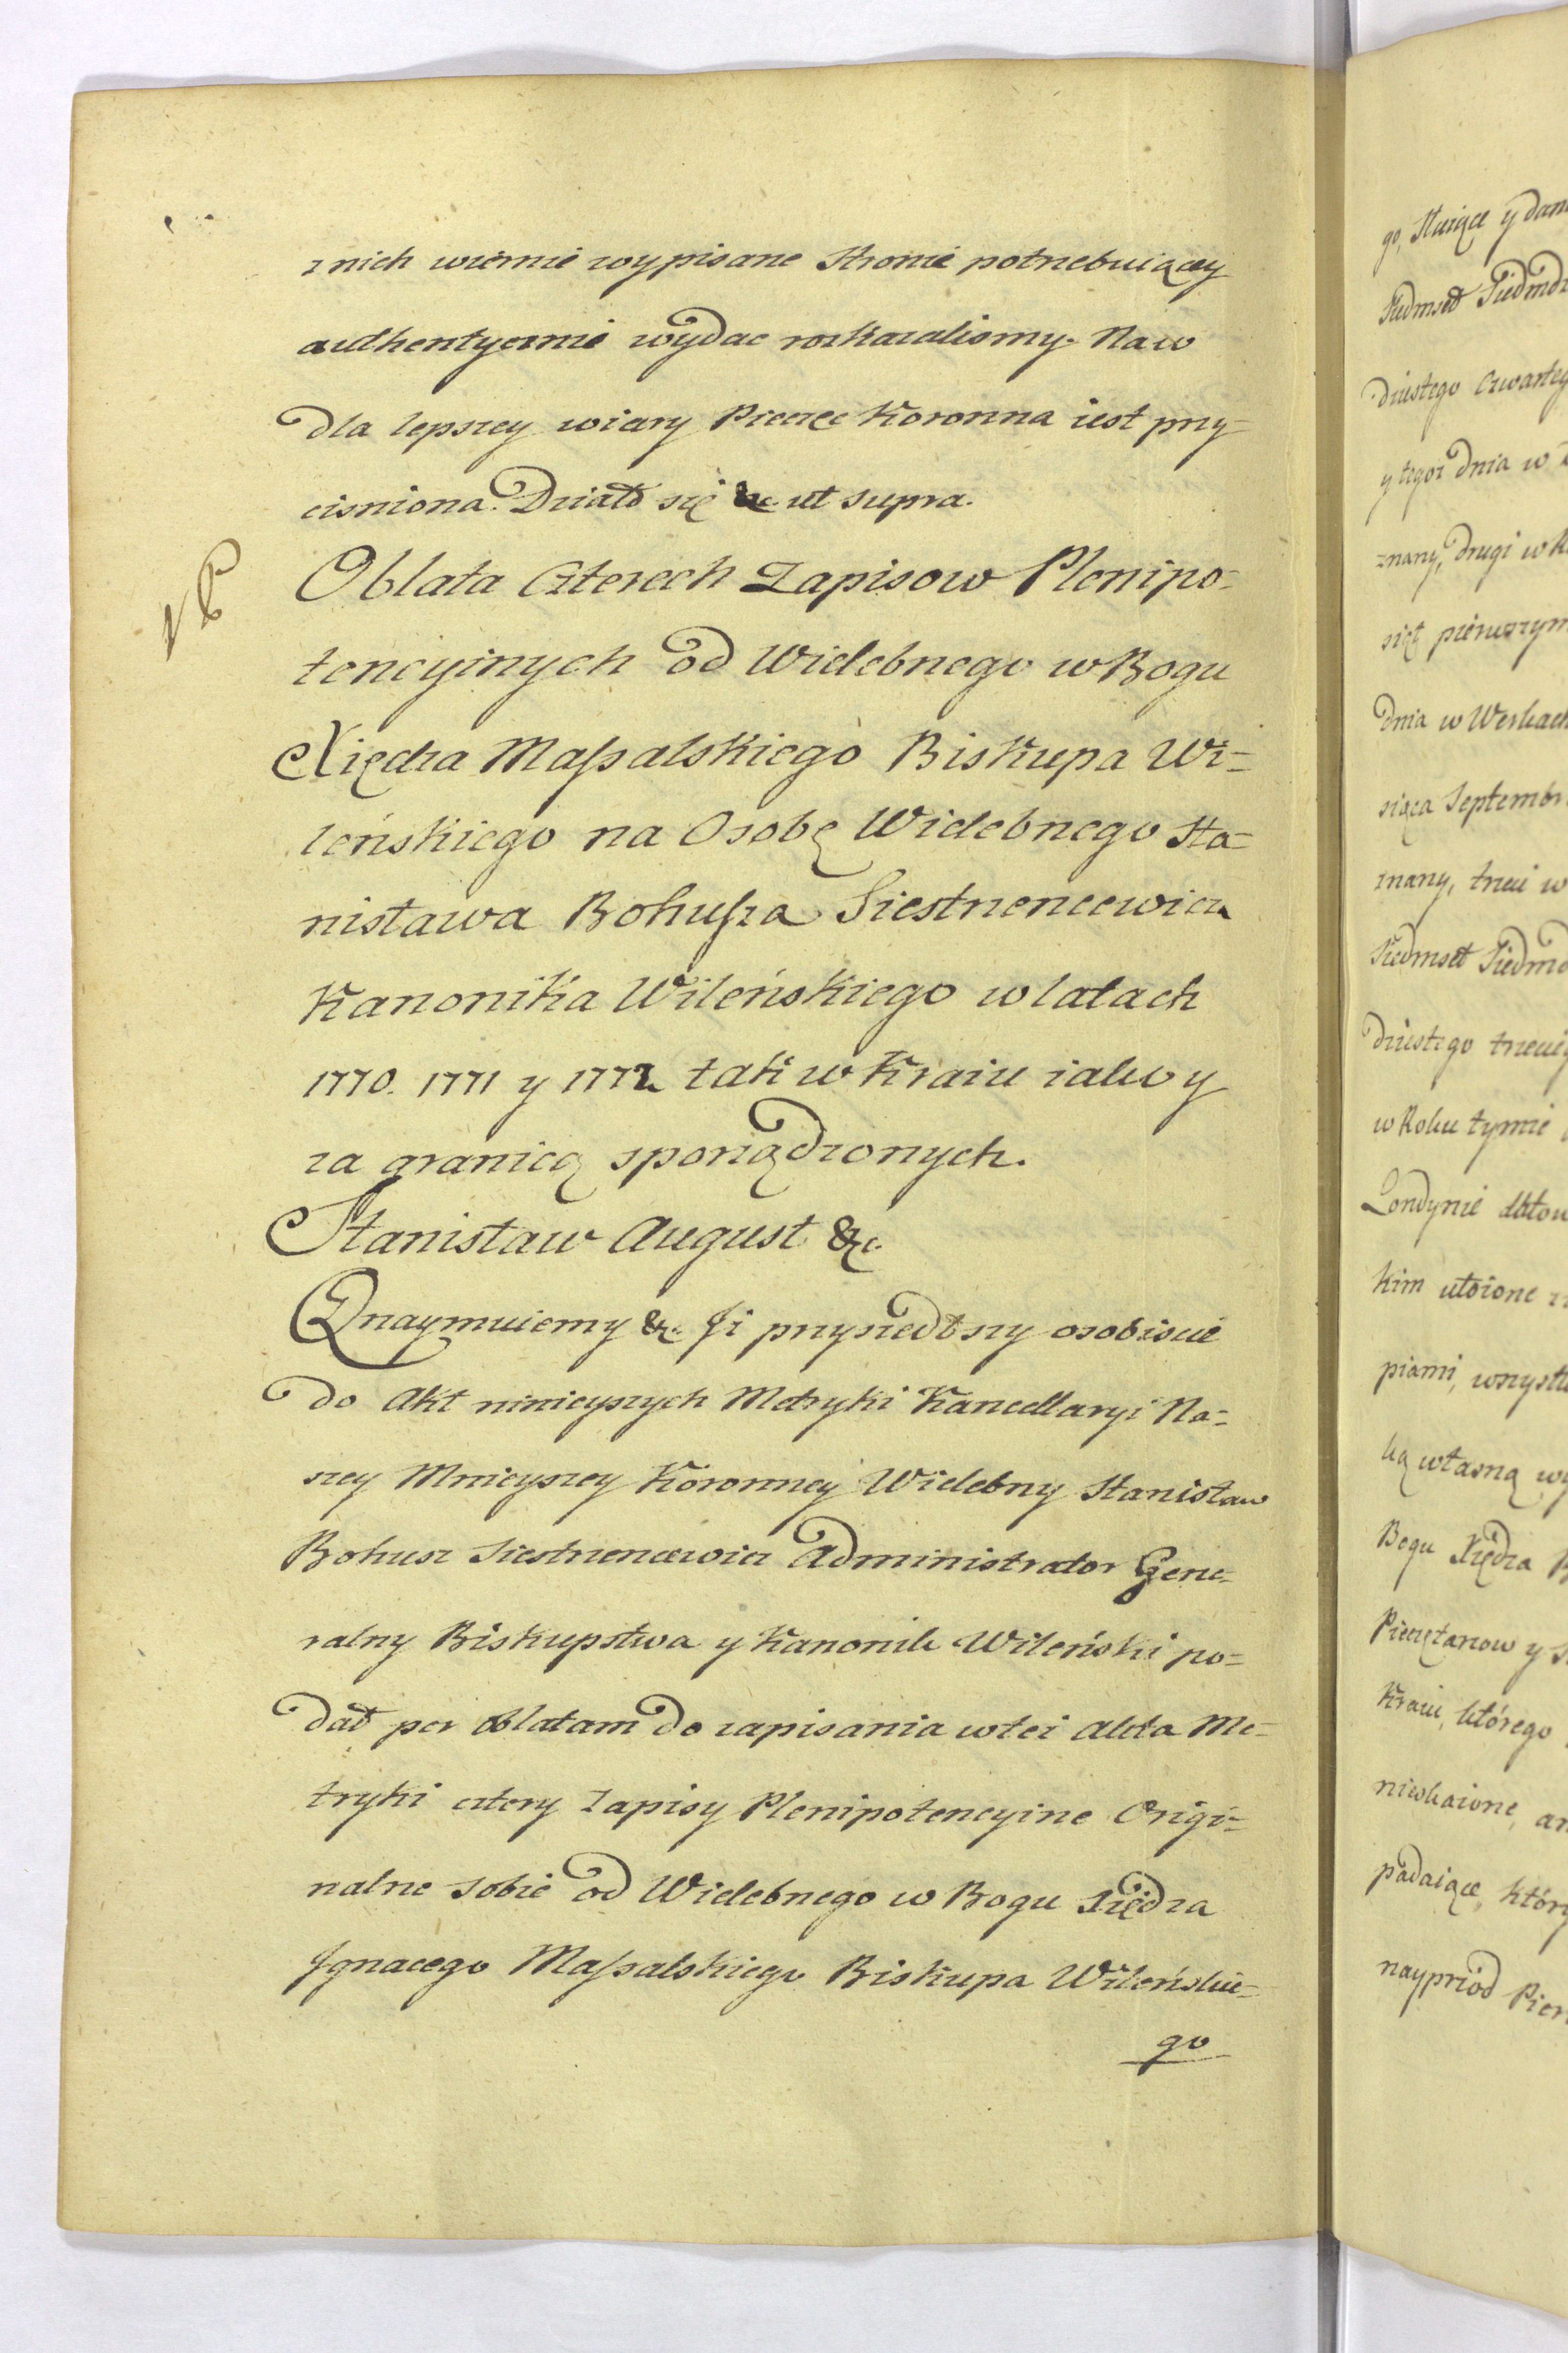 z nich wiernie wypisane Stronie potrzebuiącey
authentycznie wydac rozkazalismy. Na co
dla lepszey wiary Pieczęc Koronna iest przy-
cisniona. Działo się &c. ut supra.
Oblata Czterech Zapisow Plenipo-
tencyinych od Wielebnego w Bogu
Xiędza Maſsalskiego Biskupa Wi-
leńskiego na Osobę Wielebnego Sta-
nisława Bohuſza Siestrzencewicza
Kanonika Wileńskiego w latach
1770. 1771 y 1772 tak w Kraiu iako y
za granicą sporządzonych.
Stanisław August &c.
Oznaymuiemy &c. Iż przyszedłszy osobiscie
do Akt ninieyszych Metryki Kancellaryi Na-
szey Mnieyszey Koronney Wielebny Stanisław
Bohusz Siestrzencewicz Administrator Gene-
ralny Biskupstwa y Kanonik Wileński po-
dał per oblatam do zapisania w też Akta Me-
tryki cztery Zapisy Plenipotencyine Origi-
nalne sobie od Wielebnego w Bogu Xiędza
Ignacego Maſsalskiego Biskupa Wileńskie-
go
go, służące y dan
Siedmset Siedmdz
dziestego czwarteg
y tegoż dnia w
znany, drugi w
siąt pierwszym
dnia w Werkach
siąca Septembr
znany, trzeci w
Siedmset Siedmd
dziestego trzecie
w Roku tymże
Londynie datow
kim ułożone
piami, wszystk
ką własną
Bogu Xiędza B
Pieczętarzow y
Kraiu, którego
nieskażone,
padaiące, któr
nayprzód Pier